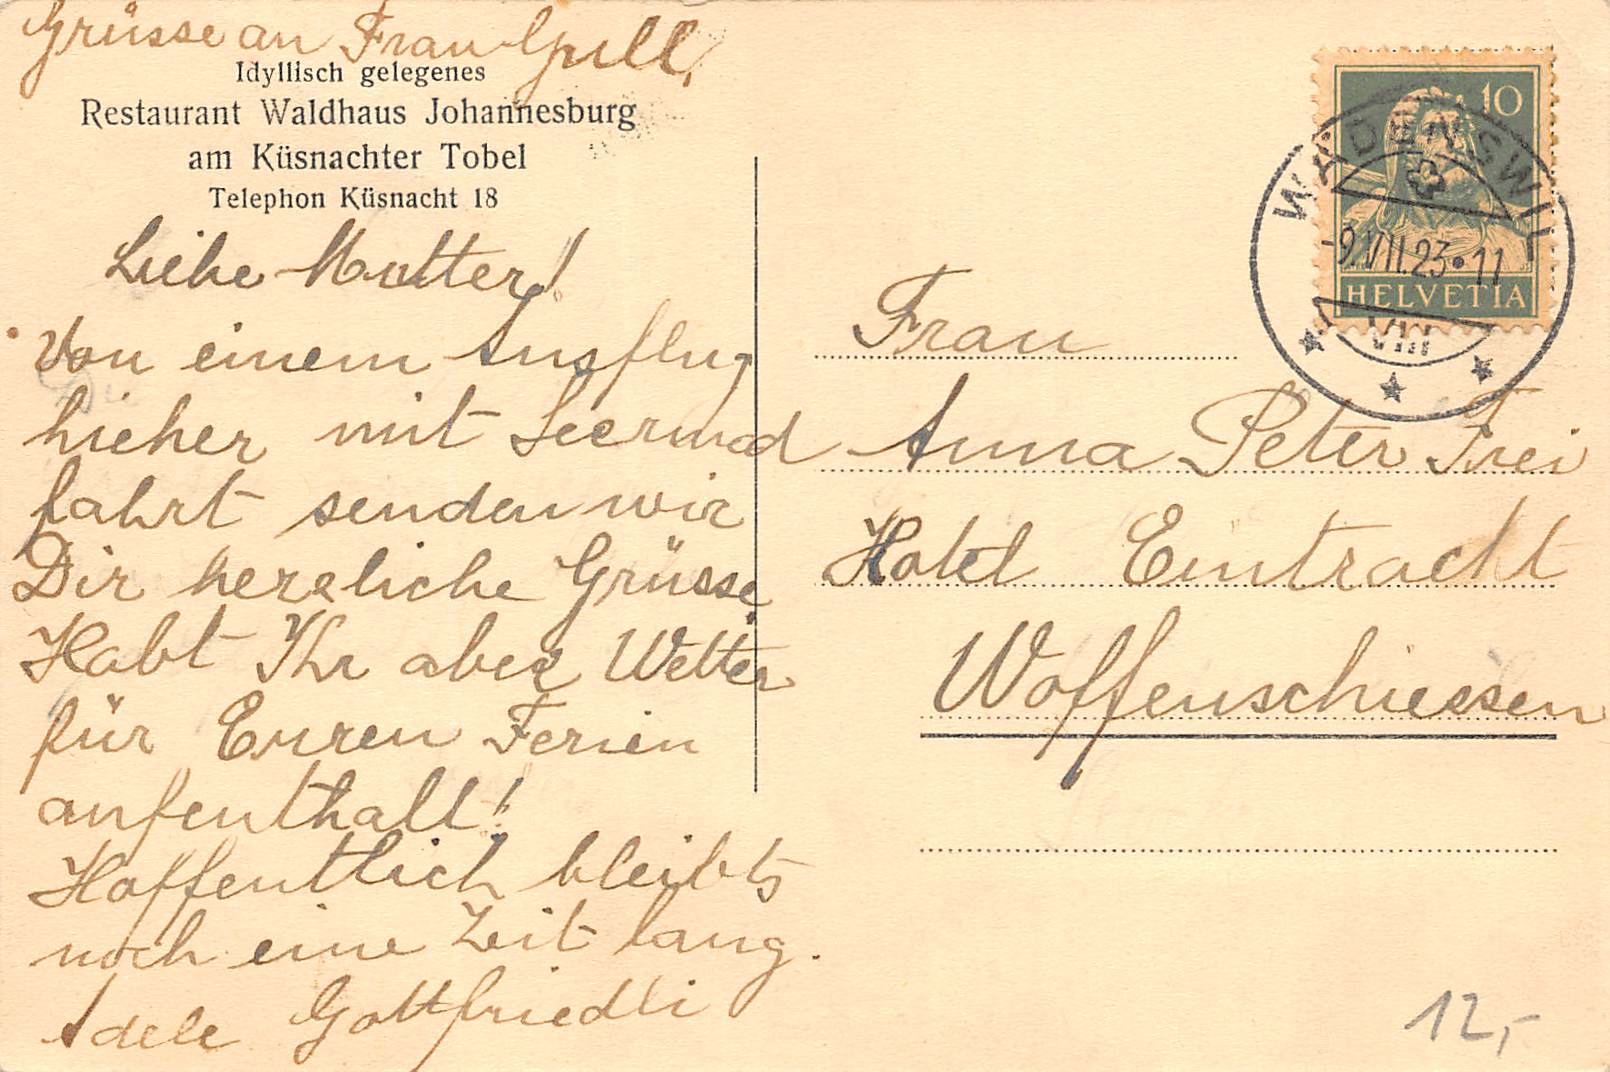 Grüsse an Frau Gull.
Idyllisch gelegenes
Restaurant Waldhaus Johannesburg
am Küsnachter Tobel
Telephon Küsnacht 18
Liebe Mutter!
Von einem Ausflug
hieher mit Seerund
fahrt senden wir
Dir herzliche Grüsse.
Habt Ihr aber Wetter
für Euren Ferien
aufenthalt!
Hoffentlich bleibts
noch eine Zeit lang.
Adele Gottfriedli
10
WÄDENSWIL
-9.VII.23•11
HELVETIA
VIII
Frau
Anna Peter Frei
Hotel Eintracht
Wolfenschiessen
12,-